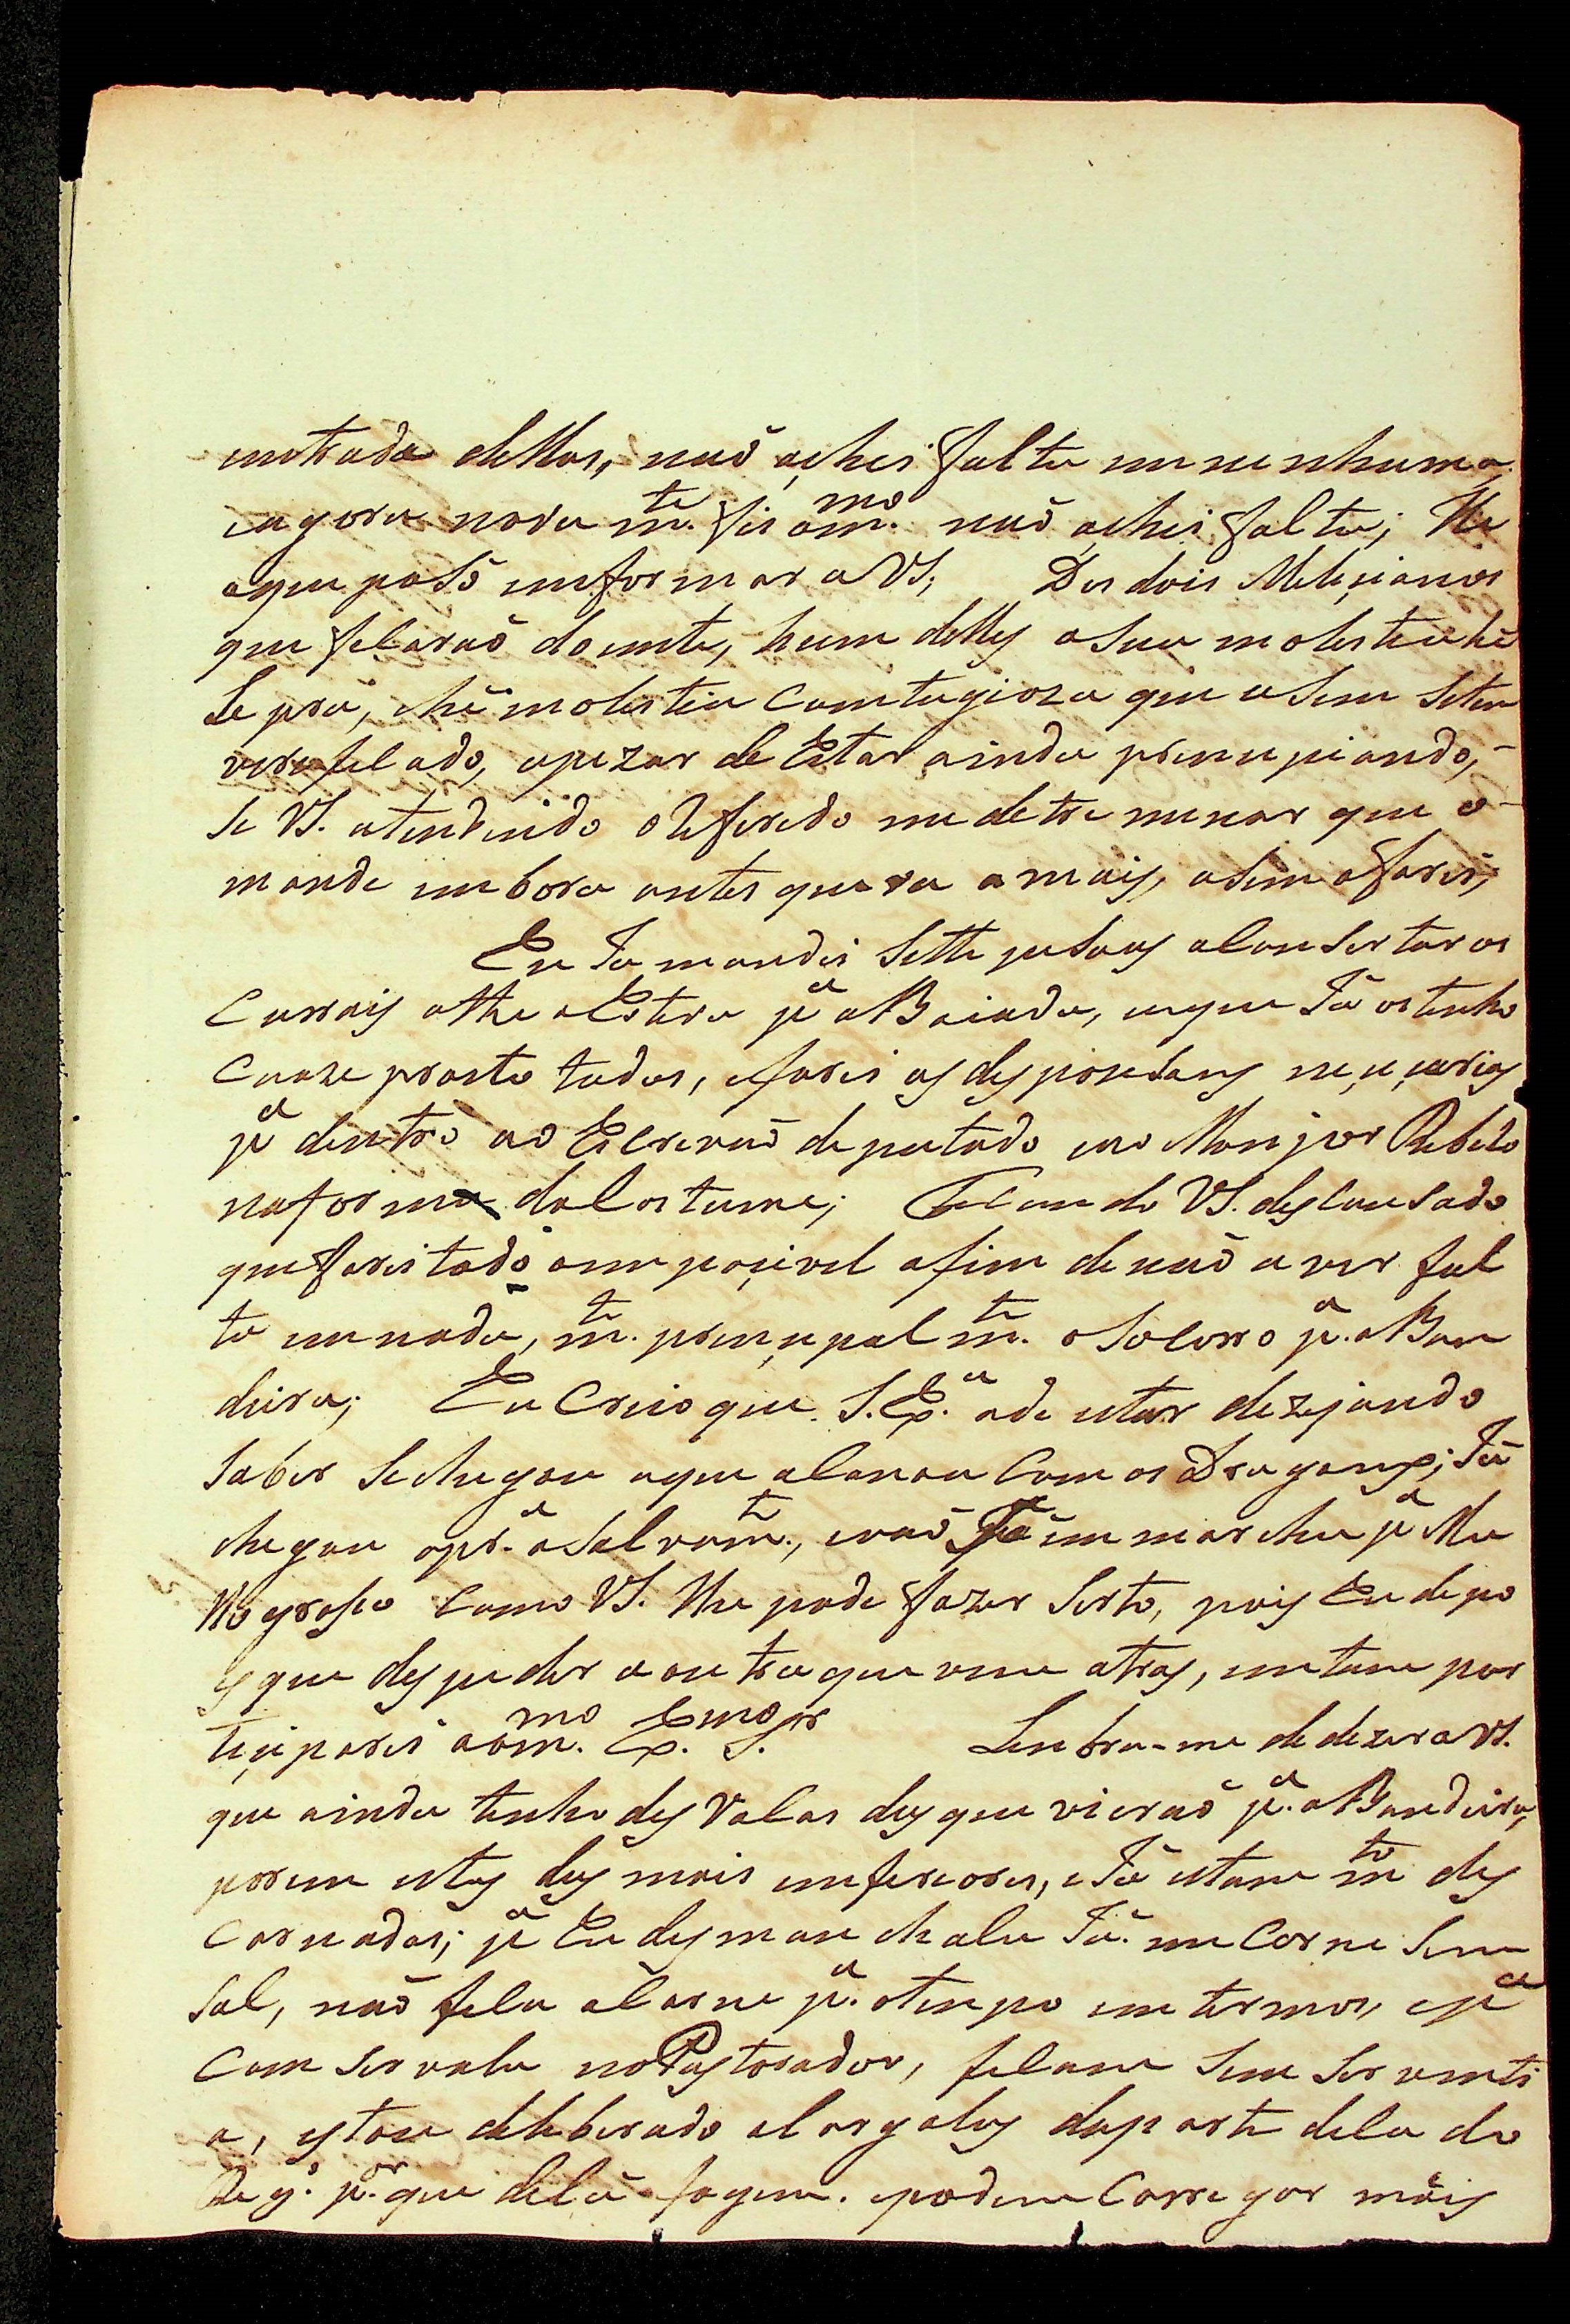 entrada dellas, naõ achei falta em nenhuma
eagora nova m.te fis om.mo naõ achei falta; He
oque poso emformar a VS; Dos dois Meliçianos
que ficaraõ doente, hum delles asua molestia hê
Leprá, hê molestia comtagioza que asim setem
vereficado, apezar de Estar ainda prencipiando,
se VS. atendendo oReferedo me detremenar que o
mande embora antes que va amais, asim ofarei,
Eu Ja mandei Sette pesoas aConsertar os
Currais athe aEstera p.a aBaiada, eque Já os tenho
Cuaze pronto todos, efarei as despoisoens neçeçarias
p.a dentro ao Escrivaõ deputado eao Manjor Rebelo
naforma doCostume; Ficando VS. descansado
quefarei todo oempoçivel afim denaõ aver fal
ta emnada, m.te prencipal m.te oSocorro p.a aBan
deira; Eu Creio que S. Ex.a ade estar dezejando
Saber Sechegou aqui aCanoa Com os Dragoens; Já
chegou apr.a aSalvam.te, evaõ Já em marcha p.a Ma
to groso Como VS. lhe pode fazer Serto, pois Eu depo
is que despedir aoutra que vem atras, entam par
teçiparei aom.mo Ex.mo S.or Lembra-me dedezer a VS.
que ainda tenho des Vacas das que vieraõ p.a aBandeira,
porem estas das mais emferiores, eJá estam m.to des
Carnadas; p.a Eu desmanchala Já em Carne Sem
Sal, naõ fica aCarne p.a otempo em termos, ep.a
Comservala noPastorador, ficam Sem Serventi
a, estou deleberado alargalas daparte dela do
Reg.o p.or que delá fogem. epodem Carregar mais